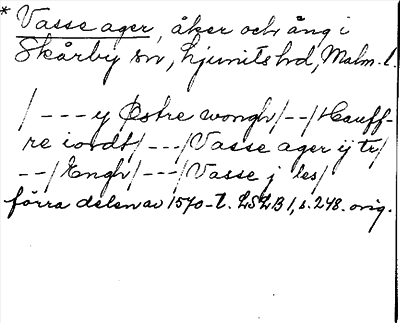 * Vasse ager, åker och äng i
Skårby sn, Ljunits hd, Malm. l.
/---y Østre wongh/--/Hauff-
re iordt/---/Vasse ager ij tr/
--/Engh/---/Vasse j les/
förra delen av 1570-t. LSLB 1, s. 248. orig.